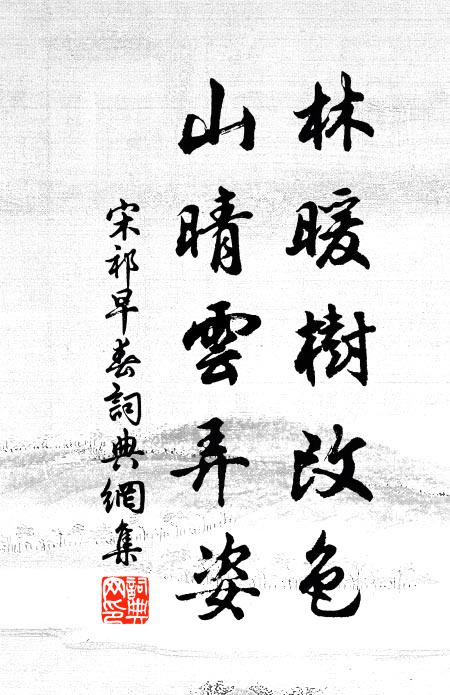 林暖樹改色
山晴雲弄姿
宋祁早春詞典網集
詞典网印